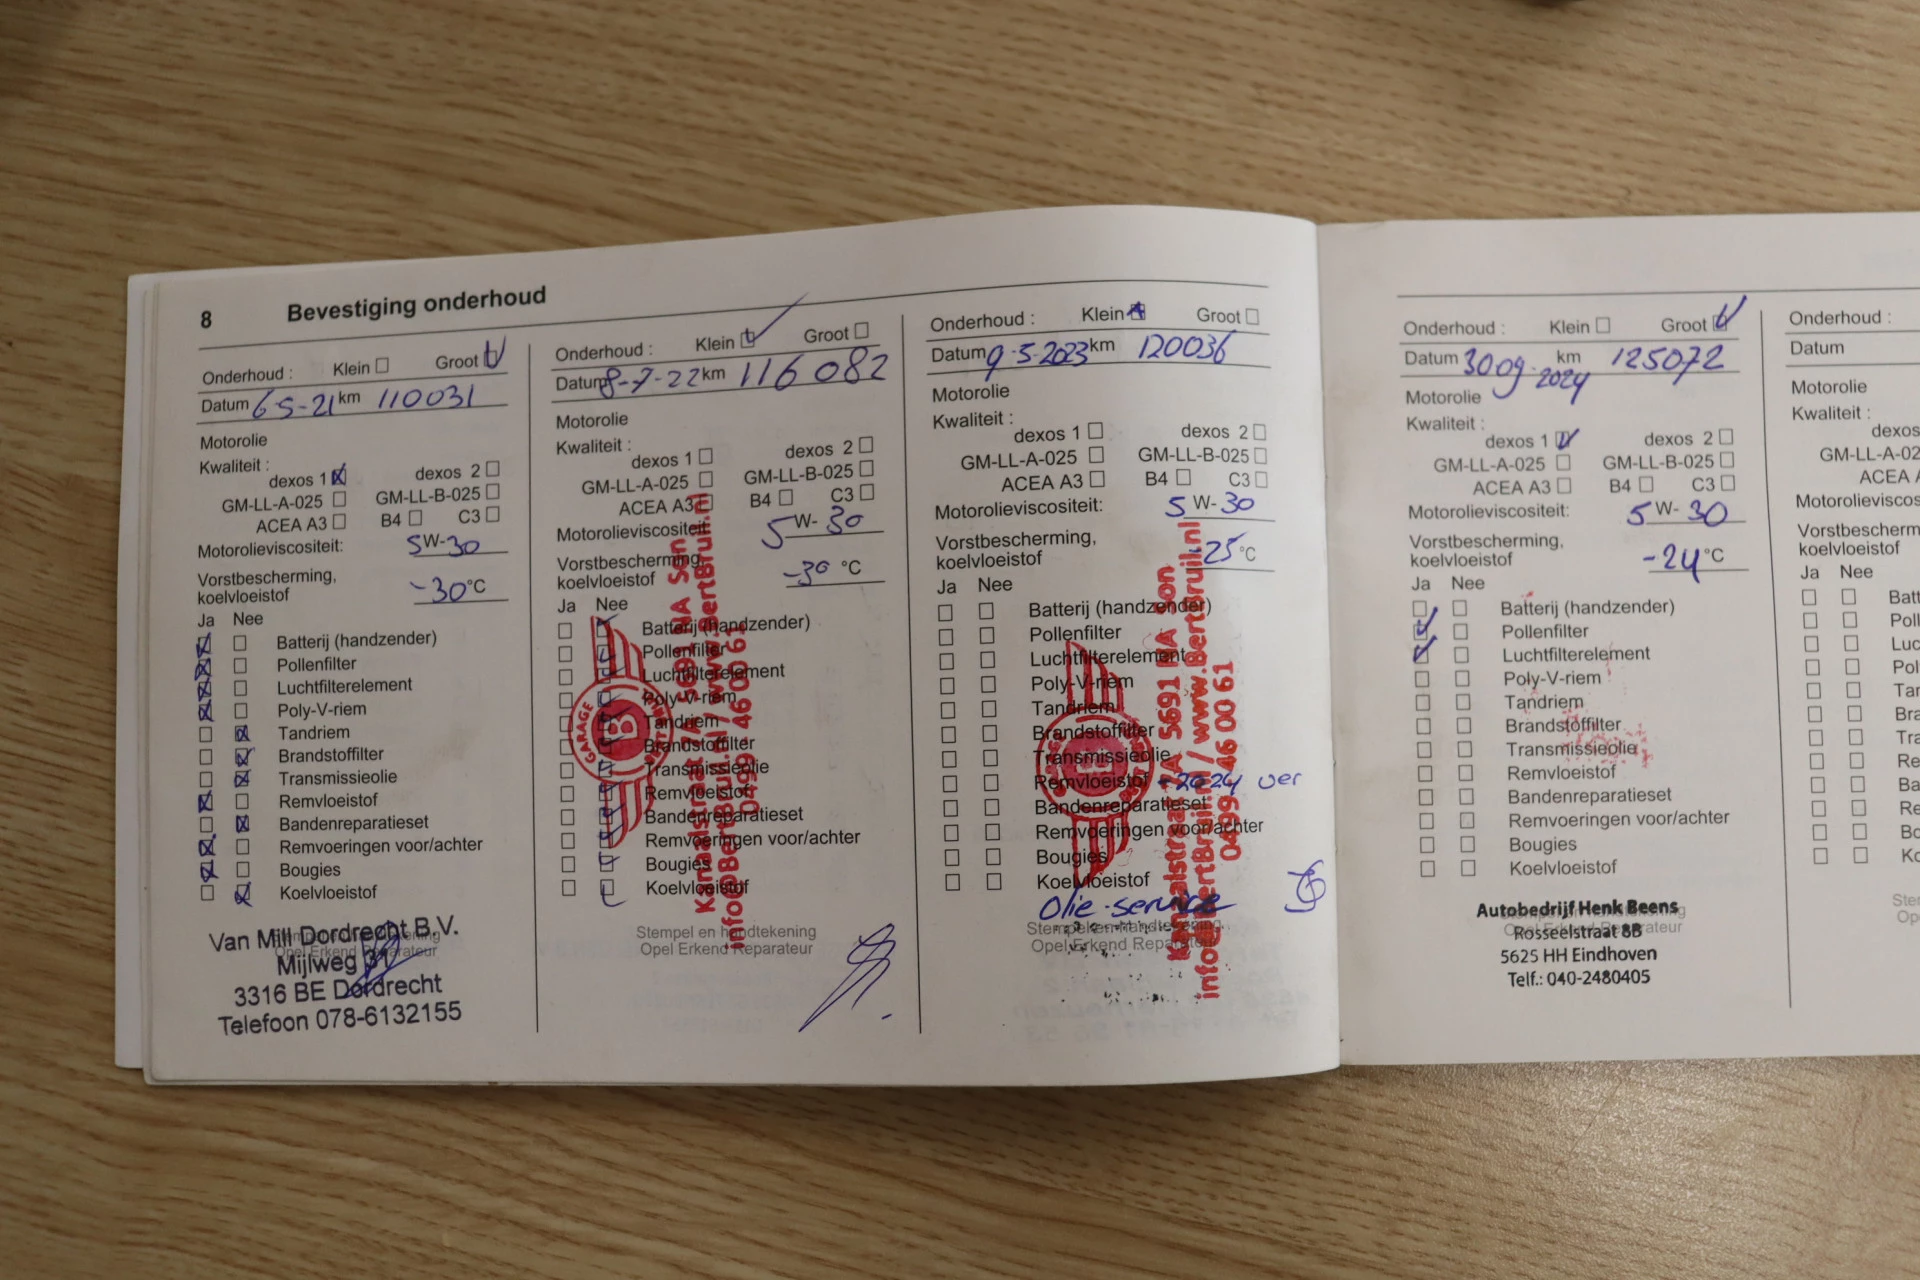 8 Bevestiging onderhoud
Onderhoud : Klein Groot
Datum 6-5-21 km 110031
Motorolie
Kwaliteit :
dexos 1 dexos 2
GM-LL-A-025 GM-LL-B-025
ACEA A3 B4 C3
Motorolieviscositeit: 5W-30
Vorstbescherming,
koelvloeistof -30°C
Ja Nee
Batterij (handzender)
Pollenfilter
Luchtfilterelement
Poly-V-riem
Tandriem
Brandstoffilter
Transmissieolie
Remvloeistof
Bandenreparatieset
Remvoeringen voor/achter
Bougies
Koelvloeistof
Stempel en handtekening
Opel Erkend Reparateur
Van Mill Dordrecht B.V.
Mijlweg 31
3316 BE Dordrecht
Telefoon 078-6132155
Onderhoud : Klein Groot
Datum 8-7-22 km 116082
Motorolie
Kwaliteit :
dexos 1 dexos 2
GM-LL-A-025 GM-LL-B-025
ACEA A3 B4 C3
Motorolieviscositeit: 5W-30
Vorstbescherming,
koelvloeistof -30 °C
Ja Nee
Batterij (handzender)
Pollenfilter
Luchtfilterelement
Poly-V-riem
Tandriem
Brandstoffilter
Transmissieolie
Remvloeistof
Bandenreparatieset
Remvoeringen voor/achter
Bougies
Koelvloeistof
GARAGE
B
Kanaalstraat 5691 NA Son
info@BertBruil.nl / www.BertBruil.nl
0499 - 46 00 61
Stempel en handtekening
Opel Erkend Reparateur
Onderhoud : Klein Groot
Datum 9-5-2023 km 120036
Motorolie
Kwaliteit :
dexos 1 dexos 2
GM-LL-A-025 GM-LL-B-025
ACEA A3 B4 C3
Motorolieviscositeit: 5W-30
Vorstbescherming,
koelvloeistof -25°C
Ja Nee
Batterij (handzender)
Pollenfilter
Luchtfilterelement
Poly-V-riem
Tandriem
Brandstoffilter
Transmissieolie
Remvloeistof - 2024 ver
Bandenreparatieset
Remvoeringen voor/achter
Bougies
Koelvloeistof
Olie-service
Kanaalstraat 5691 NA Son
info@BertBruil.nl / www.BertBruil.nl
0499 - 46 00 61
Stempel en handtekening
Opel Erkend Reparateur
Onderhoud : Klein Groot
Datum 30 09-2024 km 125072
Motorolie
Kwaliteit :
dexos 1 dexos 2
GM-LL-A-025 GM-LL-B-025
ACEA A3 B4 C3
Motorolieviscositeit: 5W-30
Vorstbescherming,
koelvloeistof -24°C
Ja Nee
Batterij (handzender)
Pollenfilter
Luchtfilterelement
Poly-V-riem
Tandriem
Brandstoffilter
Transmissieolie
Remvloeistof
Bandenreparatieset
Remvoeringen voor/achter
Bougies
Koelvloeistof
Autobedrijf Henk Beens
Rosseelstraat 8B
5625 HH Eindhoven
Telf.: 040-2480405
Onderhoud :
Datum
Motorolie
Kwaliteit :
dexos
GM-LL-A-02
ACEA A
Motorolieviscos
Vorstbescherm
koelvloeistof
Ja Nee
Batt
Poll
Luc
Pol
Tar
Bra
Tra
Re
Ba
Re
Bo
Ko